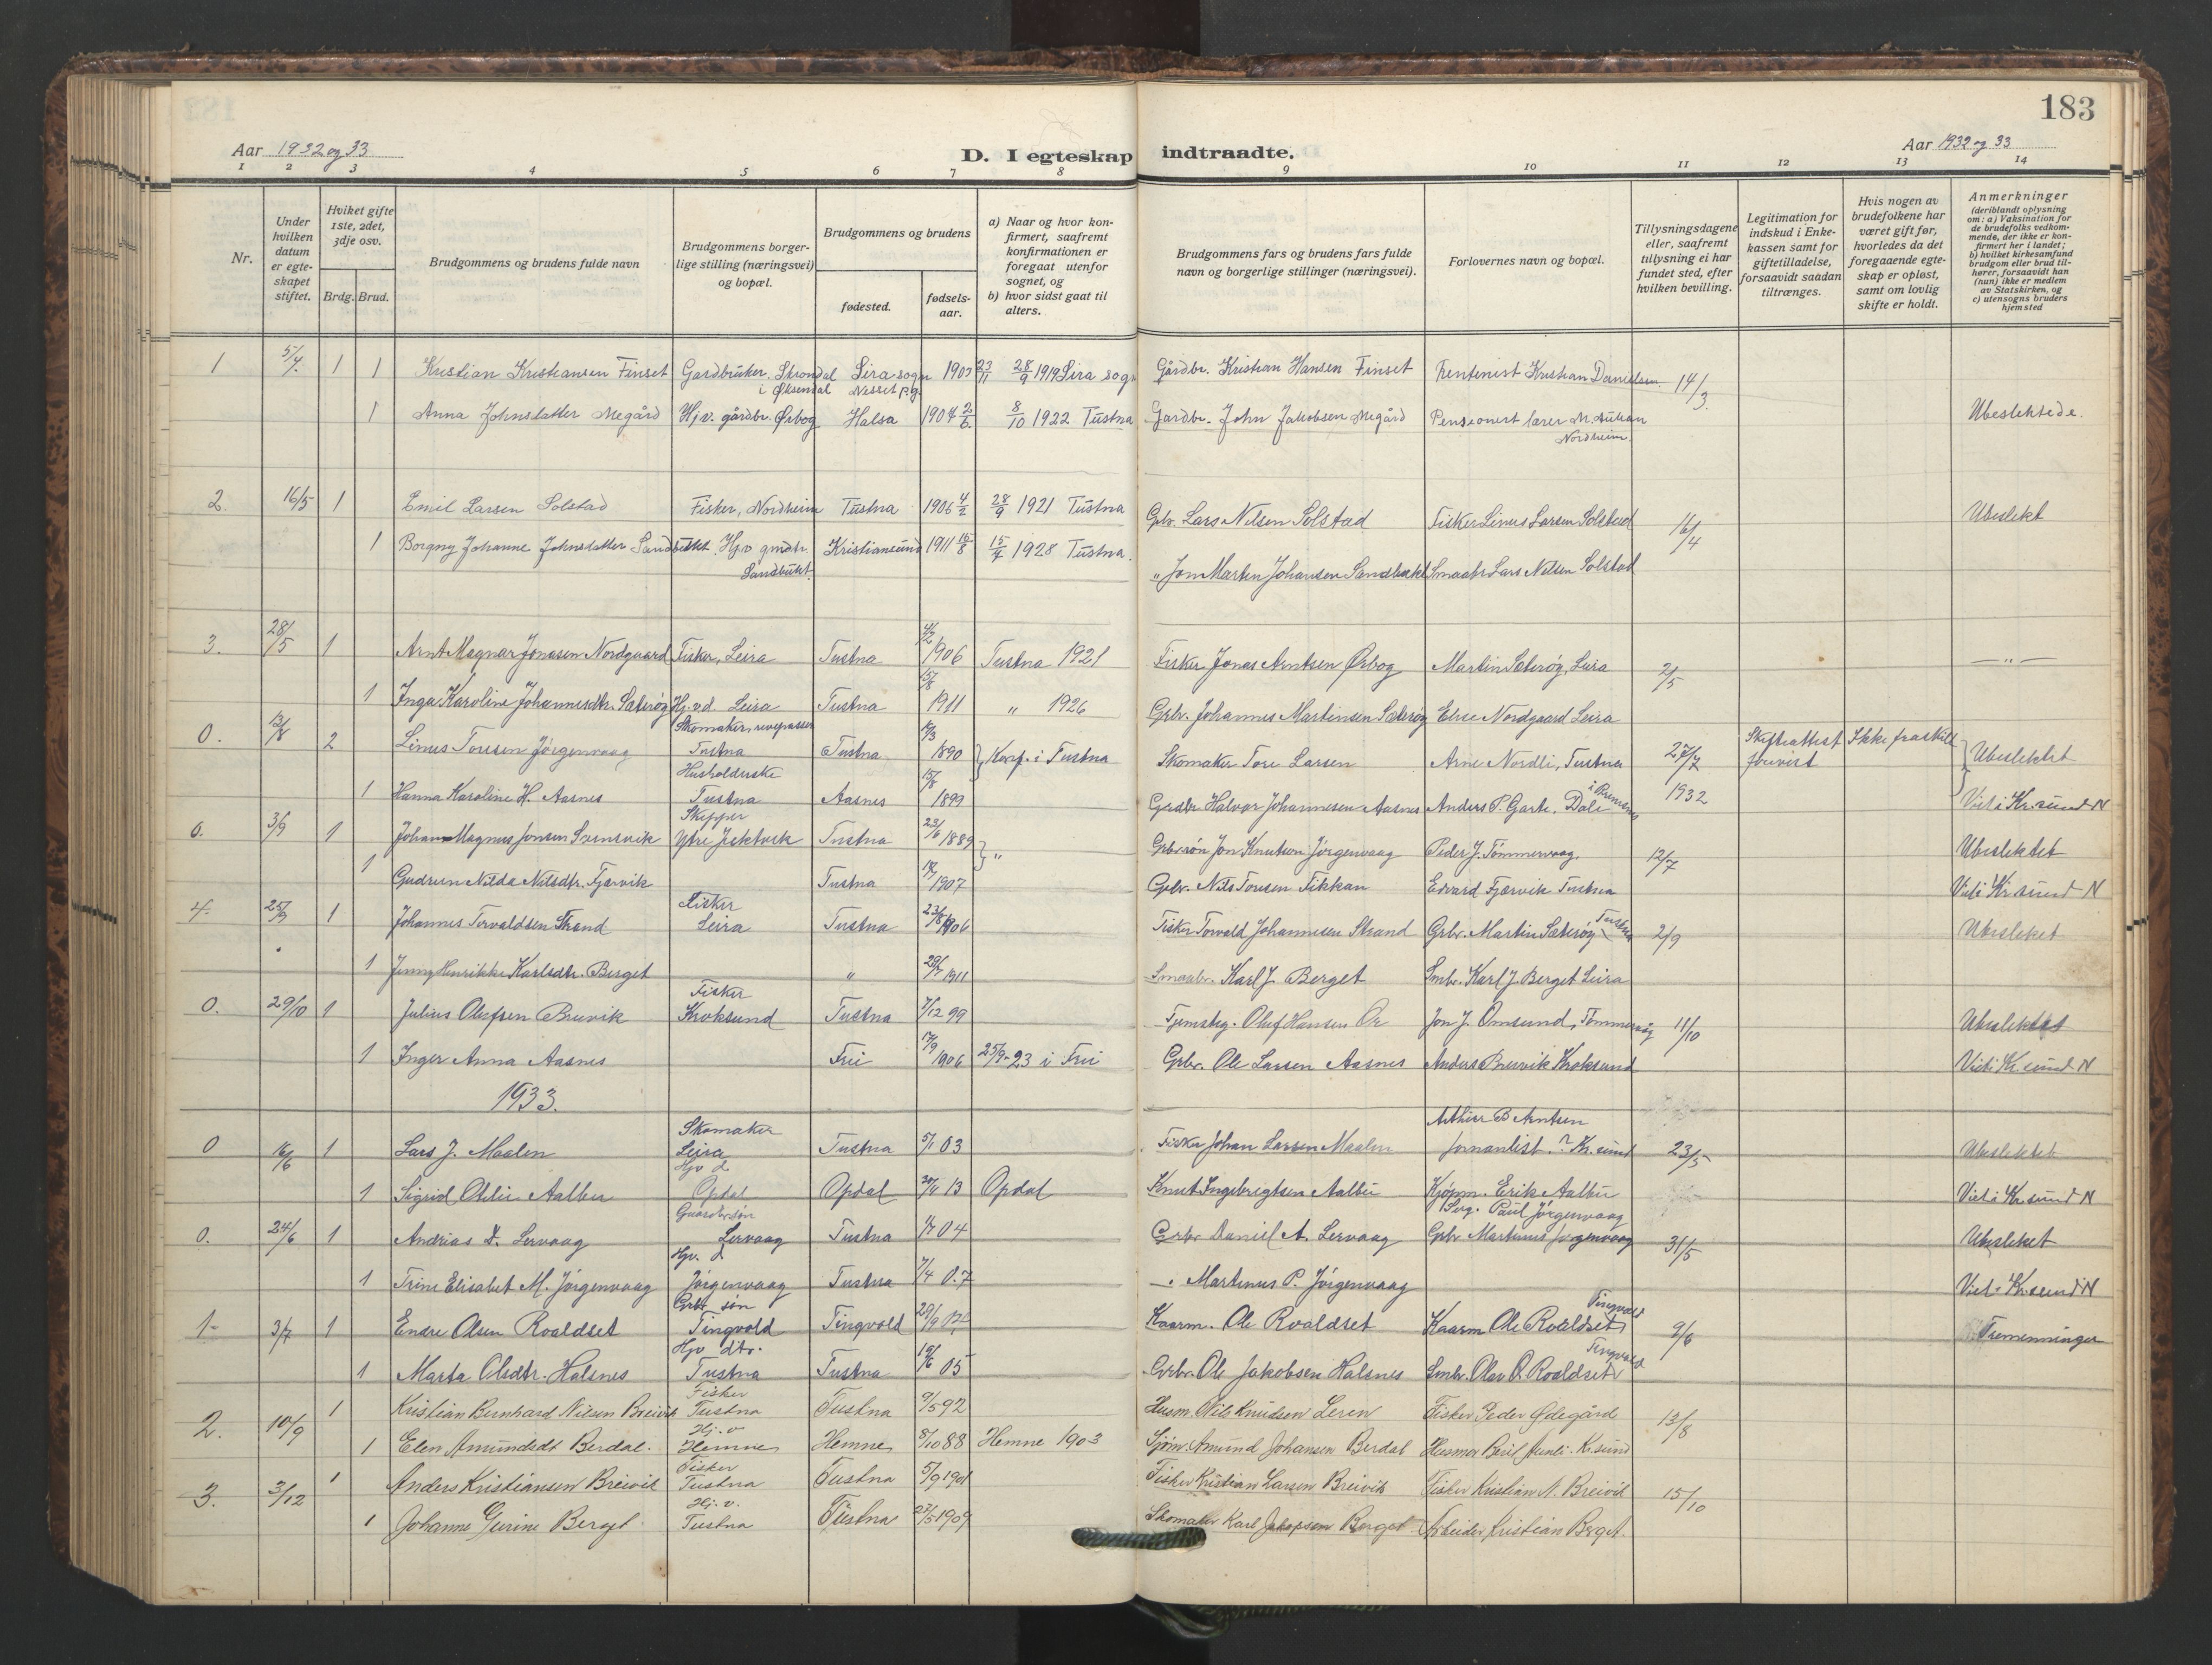 183
Aar 1932 og 33
D. I egteskap indtraadte.
Aar 1932 og 33
1 2 3 4 5 6 7 8 9 10 11 12 13 14
Nr.
Under hvilken datum er egteskapet stiftet.
Hviket gifte 1ste, 2det, 3dje osv.
Brdg. Brud.
Brudgommens og brudens fulde navn
Brudgommens borgerlige stilling (næringsvei) og bopæl.
Brudgommens og brudens
fødested.
fødselsaar.
a) Naar og hvor konfirmert, saafremt konfirmationen er foregaat utenfor sognet, og
b) hvor sidst gaat til alters.
Brudgommens fars og brudens fars fulde navn og borgerlige stillinger (næringsvei).
Forlovernes navn og bopæl.
Tillysningsdagene eller, saafremt tillysning ei har fundet sted, efter hvilken bevilling.
Legitimation for indskud i Enkekassen samt for giftetilladelse, forsaavidt saadan tiltrænges.
Hvis nogen av brudefolkene har været gift før, hvorledes da det foregaaende egteskap er opløst, samt om lovlig skifte er holdt.
Anmerkninger
(deriblandt oplysning om: a) Vaksination for de brudefolks vedkommende, der ikke er konfirmert her i landet; b) hvilket kirkesamfund brudgom eller brud tilhører, forsaavidt han (hun) ikke er medlem av Statskirken, og c) utensogns bruders hjemsted
1 5/4 1 1 Kristian Kristiansen Finset Gardbruker. Strondal i Øksendal Lira sogn Nesset p.g. 1903 23/11 28/9 1919 Lira sogn Gårdbr. Kristian Hansen Finset Rentenist Kristian Danielsen 14/3
1 Anna Johnsdatter Megård Hj.v. gårdbr. Ørbog Halsa 1904 2/6 8/10 1922 Tustna Gardbr. John Jakobsen Megård Pensionert lærer M. Nordheim. Ubeslektede.
2. 16/5 1 Emil Larsen Solstad Fisker, Nordheim Tustna 1906 4/2 28/9 1921 Tustna Grbr. Lars Nilsen Solstad Fisker Linus Larsen Solstad 16/4 Ubeslekt
1 Borgny Johanne Johnsdatter Sandbukt. Hj.v gmdtr. Sandbukt. Kristiansund 1911 15/8 15/7 1928 Tustna. " Jon Martin Johansen Sandbukt Smaabr Lars Nilsen Solstad
3. 28/5 1 Arnt Magnar Jonasen Nordgaard Fisker, Leira Tustna 4/2 1906 Tustna 1921 Fisker Jonas Arntsen Ørbog Martin Sæterøy, Leira 2/5 — " —
1 Inga Karoline Johannesdtr. Sæterøy Hj.v.d. Leira Tustna 15/8 1911 " 1926 Grbr. Johannes Martinsen Sæterøy Elise Nordgaard Leira
0. 13/8 2 Linus Toresen Jørgenvaag Skomaker, revepasser Tustna Tustna 6/3 1890 } Konf. i Tustna Skomaker Tore Larsen Arne Nordli, Tustna 27/7 1932 Skifteattest forevist Ikke fraskilt } Ubeslektet
1 Hanna Karoline H. Aasnes Husholderske Tustna Aasnes 15/8 1899 Grdbr Halvor Johannesen Aasnes Anders P. Garte. Dale i Bremsnes Viet i Kr.sund N
0. 3/9 1 Johan Magnus Jonsen Svensvik Skipper Ytre Jektvik Tustna 23/6 1889 } " Grbr.søn Jon Knutsen Jørgenvaag Peder J. Tømmervaag. 12/7 Ubeslektet
1 Gudrun Nilda Nilsdtr. Fjærvik Tustna 1907 Grbr. Nils Tousen Fikkan Edvard Fjærvik Tustna Viet i Kr.sund N
4. 25/9 1 Johannes Torvaldsen Strand Fisker Leira Tustna 23/8 1906 Fisker Torvald Johannesen Strand Grbr. Martin Sæterøy Tustna 2/9 Ubeslektet
1 Jenny Henrikke Karlsdtr. Berget " 1911 Smaabr. Karl J. Berget Smbr. Karl J. Berget Leira
0. 29/10 1 Julius Olufsen Bruvik Fisker Kroksund Tustna 7/12 99 Tjenstkg. Oluf Hansen Ør Jon J. Omsund, Tømmervåg 11/10 Ubeslektet
1 Inger Anna Aasnes Frei 17/9 1906 25/9-23 i Frei Grbr. Ole Larsen Aasnes Anders Bruvik Kroksund Viet i Kr.sund N
1933.
0 16/6 1 Lars J. Maalen Skomaker Leira Tustna 5/1 03 Fisker Johan Larsen Maalen Arthur B Arntsen Jornanlist. ? Kr.sund 23/5 Ubeslektet
1 Sigrid Otelie Aalbu Hjv d. Opdal Opdal 13 Opdal Knut Ingebrigtsen Aalbu Kjøpm. Erik Aalbu Viet i Kr.sund N
0. 24/6 1 Andrias D. Lervaag Gaardbrsøn Lervaag Tustna 04 Grbr Daniel A. Lervaag Serg. Paul Jørgenvaag Grbr Martinus Jørgenvaag 31/5 Ubeslektet
1 Trine Elisabet M. Jørgenvaag Hjv. d Jørgenvaag Tustna 7/4 07 — " Martinus P. Jørgenvaag Viet i Kr.sund N
1- 3/7 1 Endre Olsen Roaldset Grbr søn Tingvold Tingvold 29/9 Kaarm. Ole Roaldset Kaarm Ole Roaldset, Tingvold 9/6 Tremenninger
1 Marta Olesdtr. Halsnes Hjv dtr. Tustna Tustna 05 Grbr. Ole Jakobsen Halsnes Smbr. Olav O. Roaldset Tingvold
2. 10/9 1 Kristian Bernhard Nilsen Breivik Fisker Tustna Tustna 9/5 92 Husm. Nils Knudsen Leren Fisker Peder Ødegård 13/8
1 Elen Amundsdt Berdal. Hj.v Hemne Hemne 8/10 88 Hemne 1903 Sjøm. Amund Johansen Berdal Husmor Kr.sund
3. 3/12 1 Anders Kristiansen Breivik Fisker Tustna Tustna 5/9 1901 Fisker Kristian Larsen Breivik Fisker Kristian N. Breivik 15/10
1 Johanne Gurine Berget. Hj. v. Tustna Tustna 23/5 1909 Skomaker Karl Jakopsen Berget Arbeider Kristian Berget.